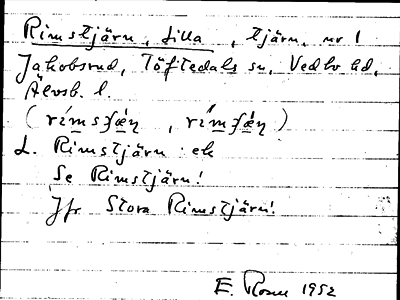 Rimstjärn, Lilla, tjärn, nr 1
Jakobsrud, Töftedals sn, Vedbo hd,
Älvsb. l.
(
L. Rimstjärn : ek
Se Rimstjärn!
Jfr Stora Rimstjärn!
E. Rosen 1952